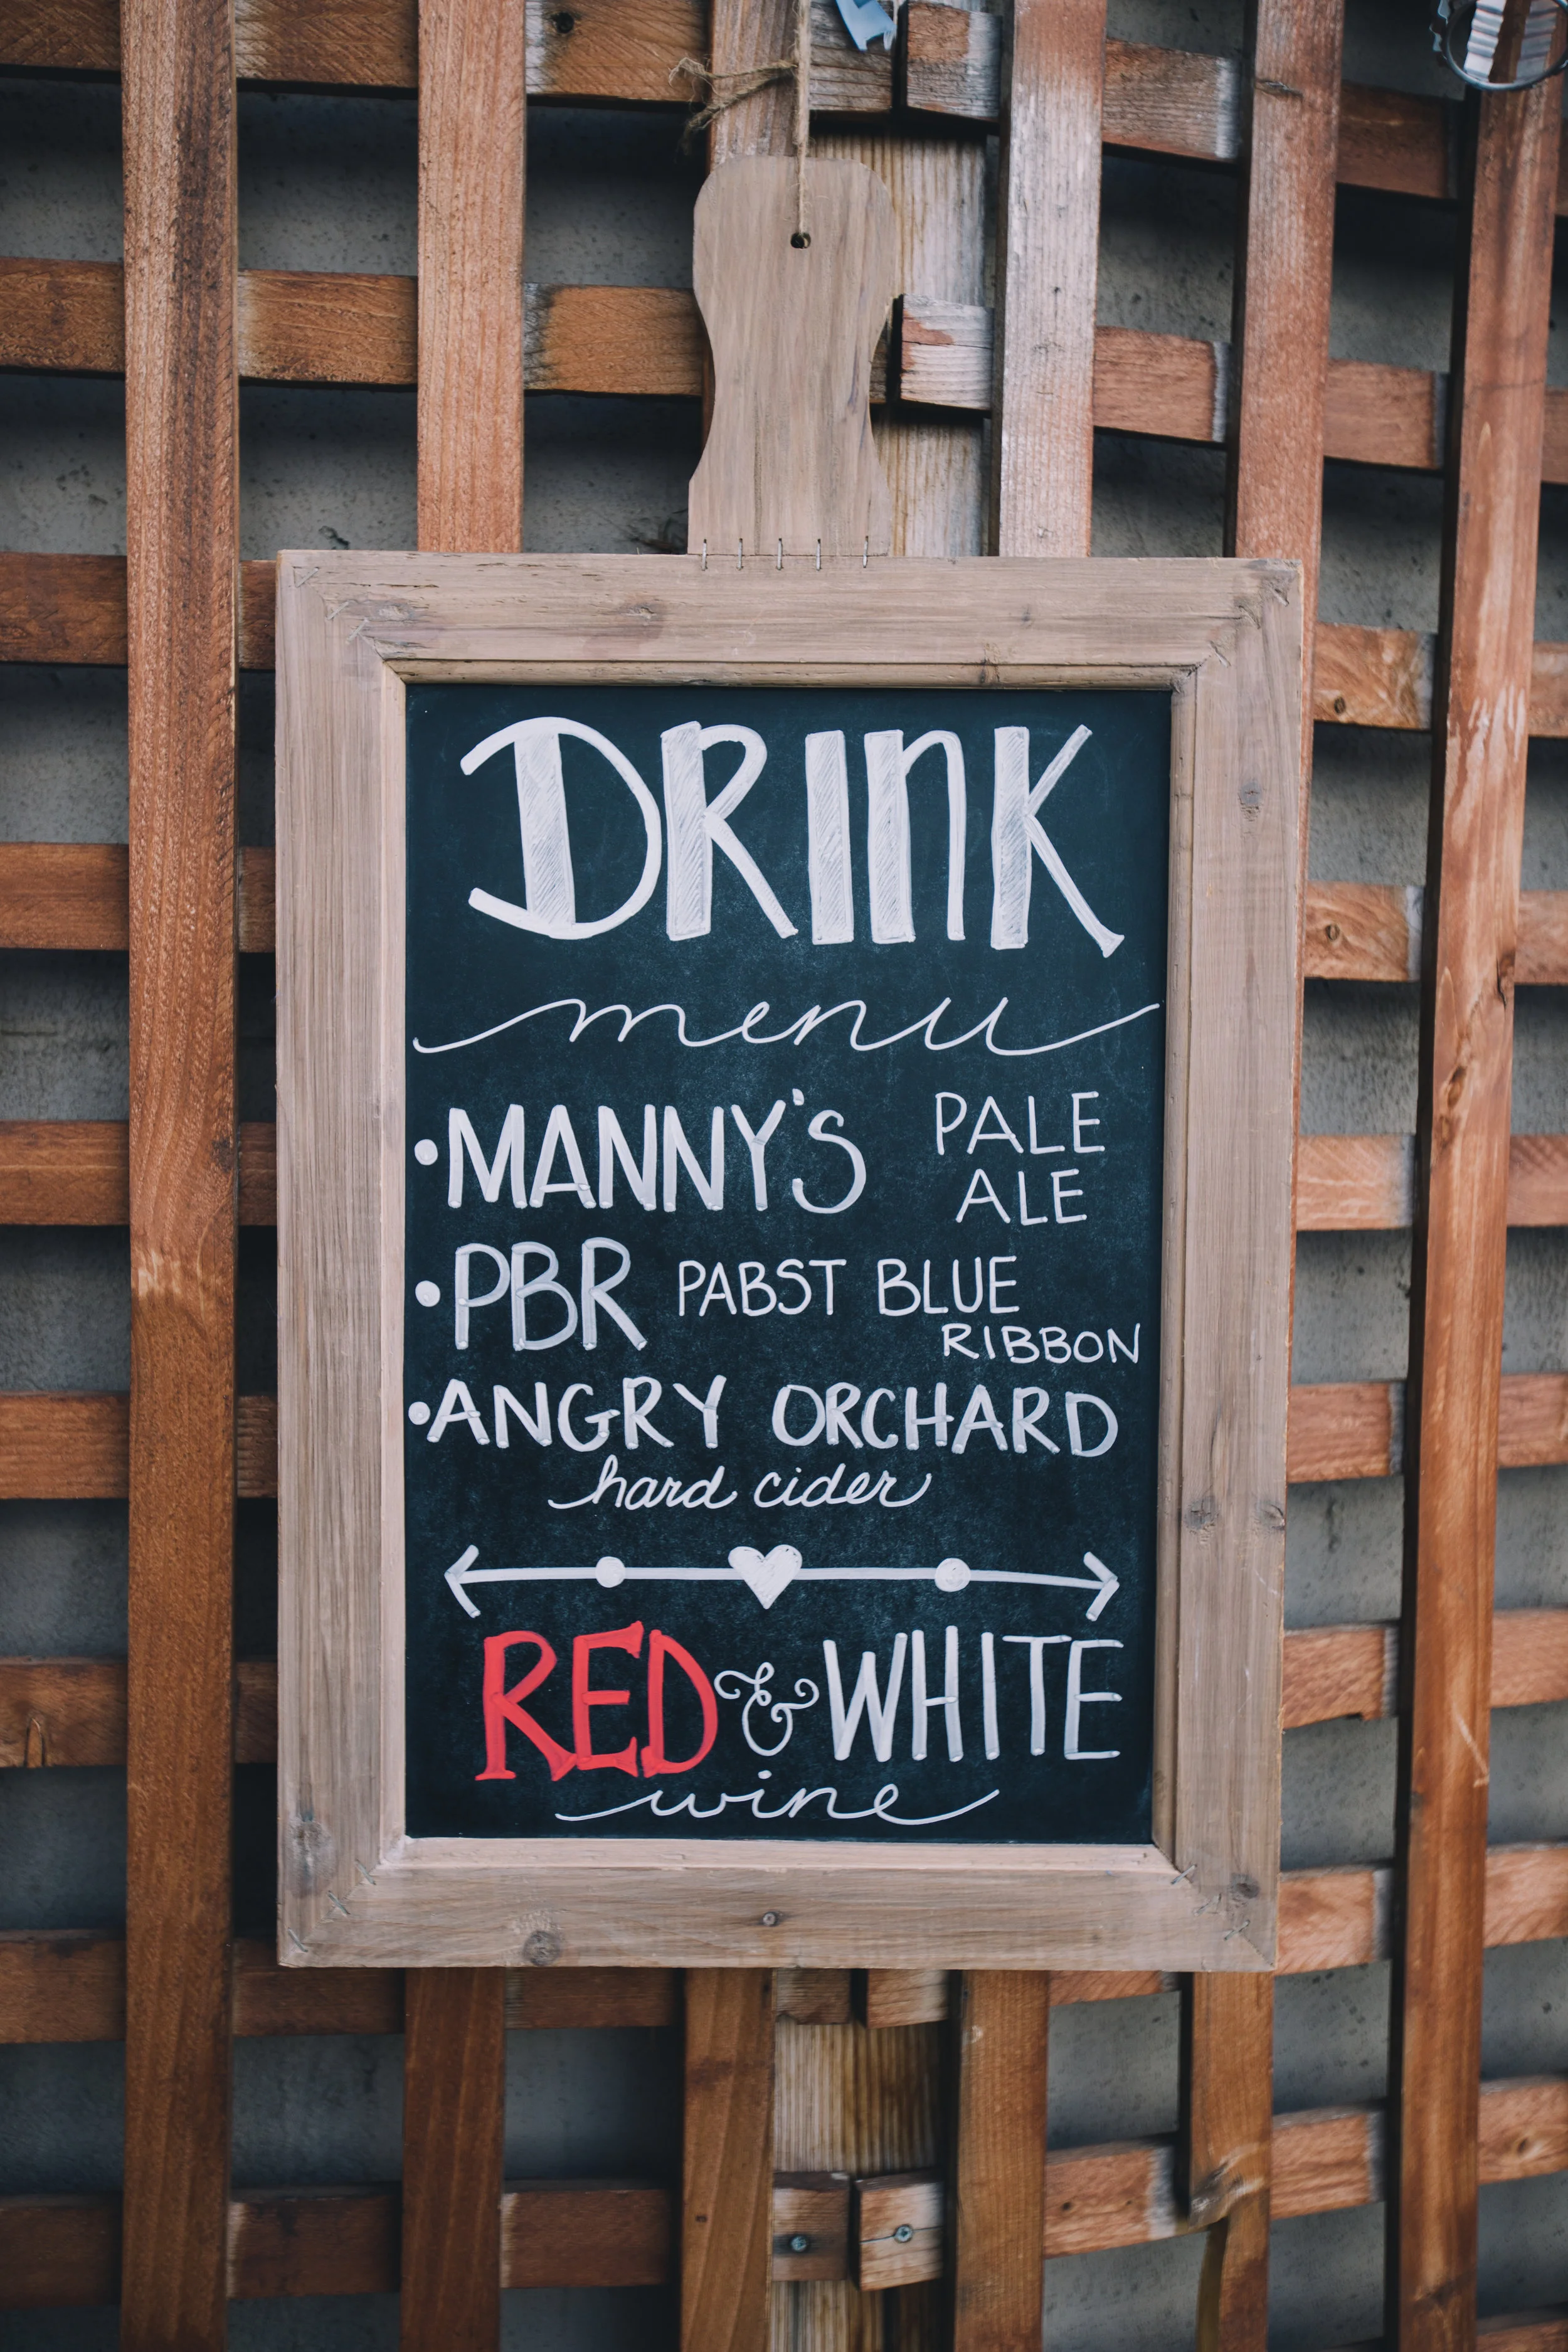 DRINK
menu
•MANNY'S PALE ALE
•PBR PABST BLUE RIBBON
•ANGRY ORCHARD
hard cider
RED & WHITE
wine